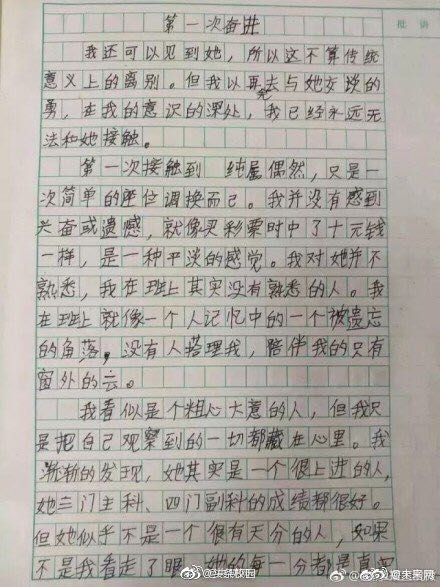 第一次奋进
批语
我还可以见到她，所以这不算传统
意义上的离别。但我以再无与她交谈的
勇，在我的意识的深处，我已经永远无
法和她接触。
第一次接触到 纯属偶然，只是一
次简单的座位调换而已。我并没有感到
兴奋或遗憾，就像买彩票时中了十元钱
一样，是一种平淡的感觉。我对她并不
熟悉，我在班上其实没有熟悉的人。我
在班上就像一个人记忆中的一个被遗忘
的角落，没有人搭理我，陪伴我的只有
窗外的云。
我看似是个粗心大意的人，但我只
是把自己观察到的一切都藏在心里。我
渐渐的发现，她其实是一个很上进的人，
她三门主科、四门副科的成绩都很好。
但她似乎不是一个很有天分的人，如果
不是我看走了眼，她的每一分都是